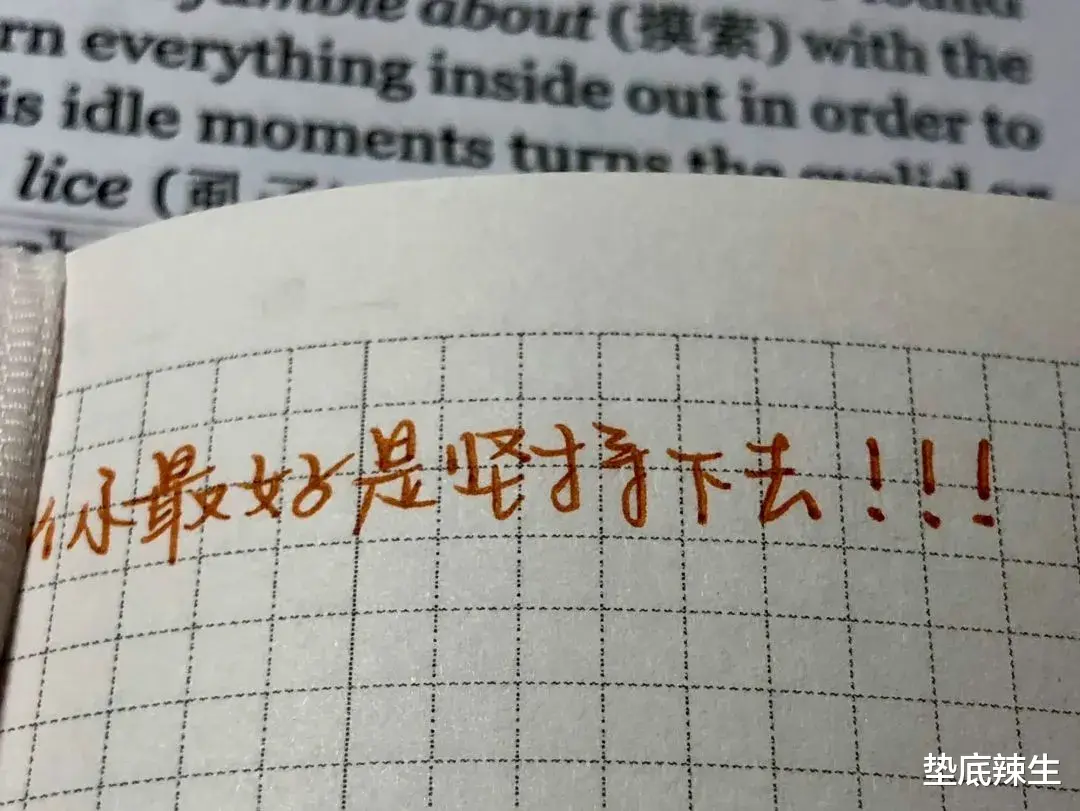 about (摸索) with the
rn everything inside out in order to
is idle moments turns the eyelid or
lice (虱子
你最好是坚持下去!!!
垫底辣生